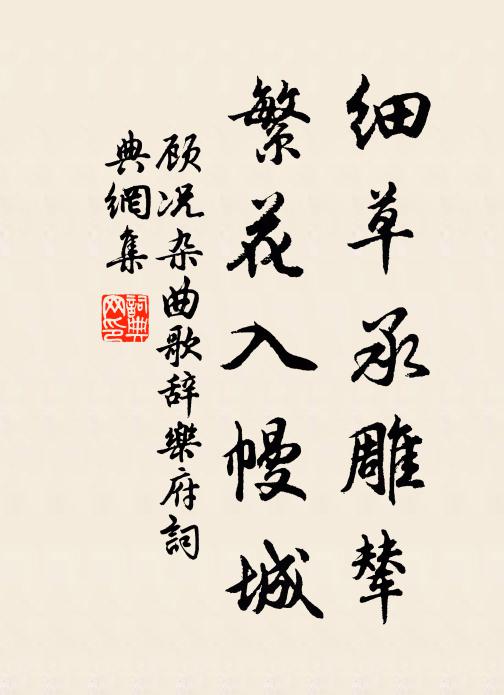 细草承雕辇
繁花入幔城
顾况杂曲歌辞樂府詞
典網集
詞典网印